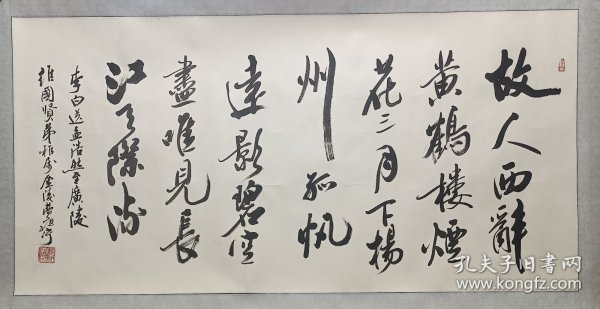 故人西辭
黄鶴樓煙
花三月下揚
州孤帆
遠影碧空
盡唯見長
江天際流
李白送孟浩然至廣陵
維國賢弟雅屬
孔夫子旧書网
www.kongfz.com